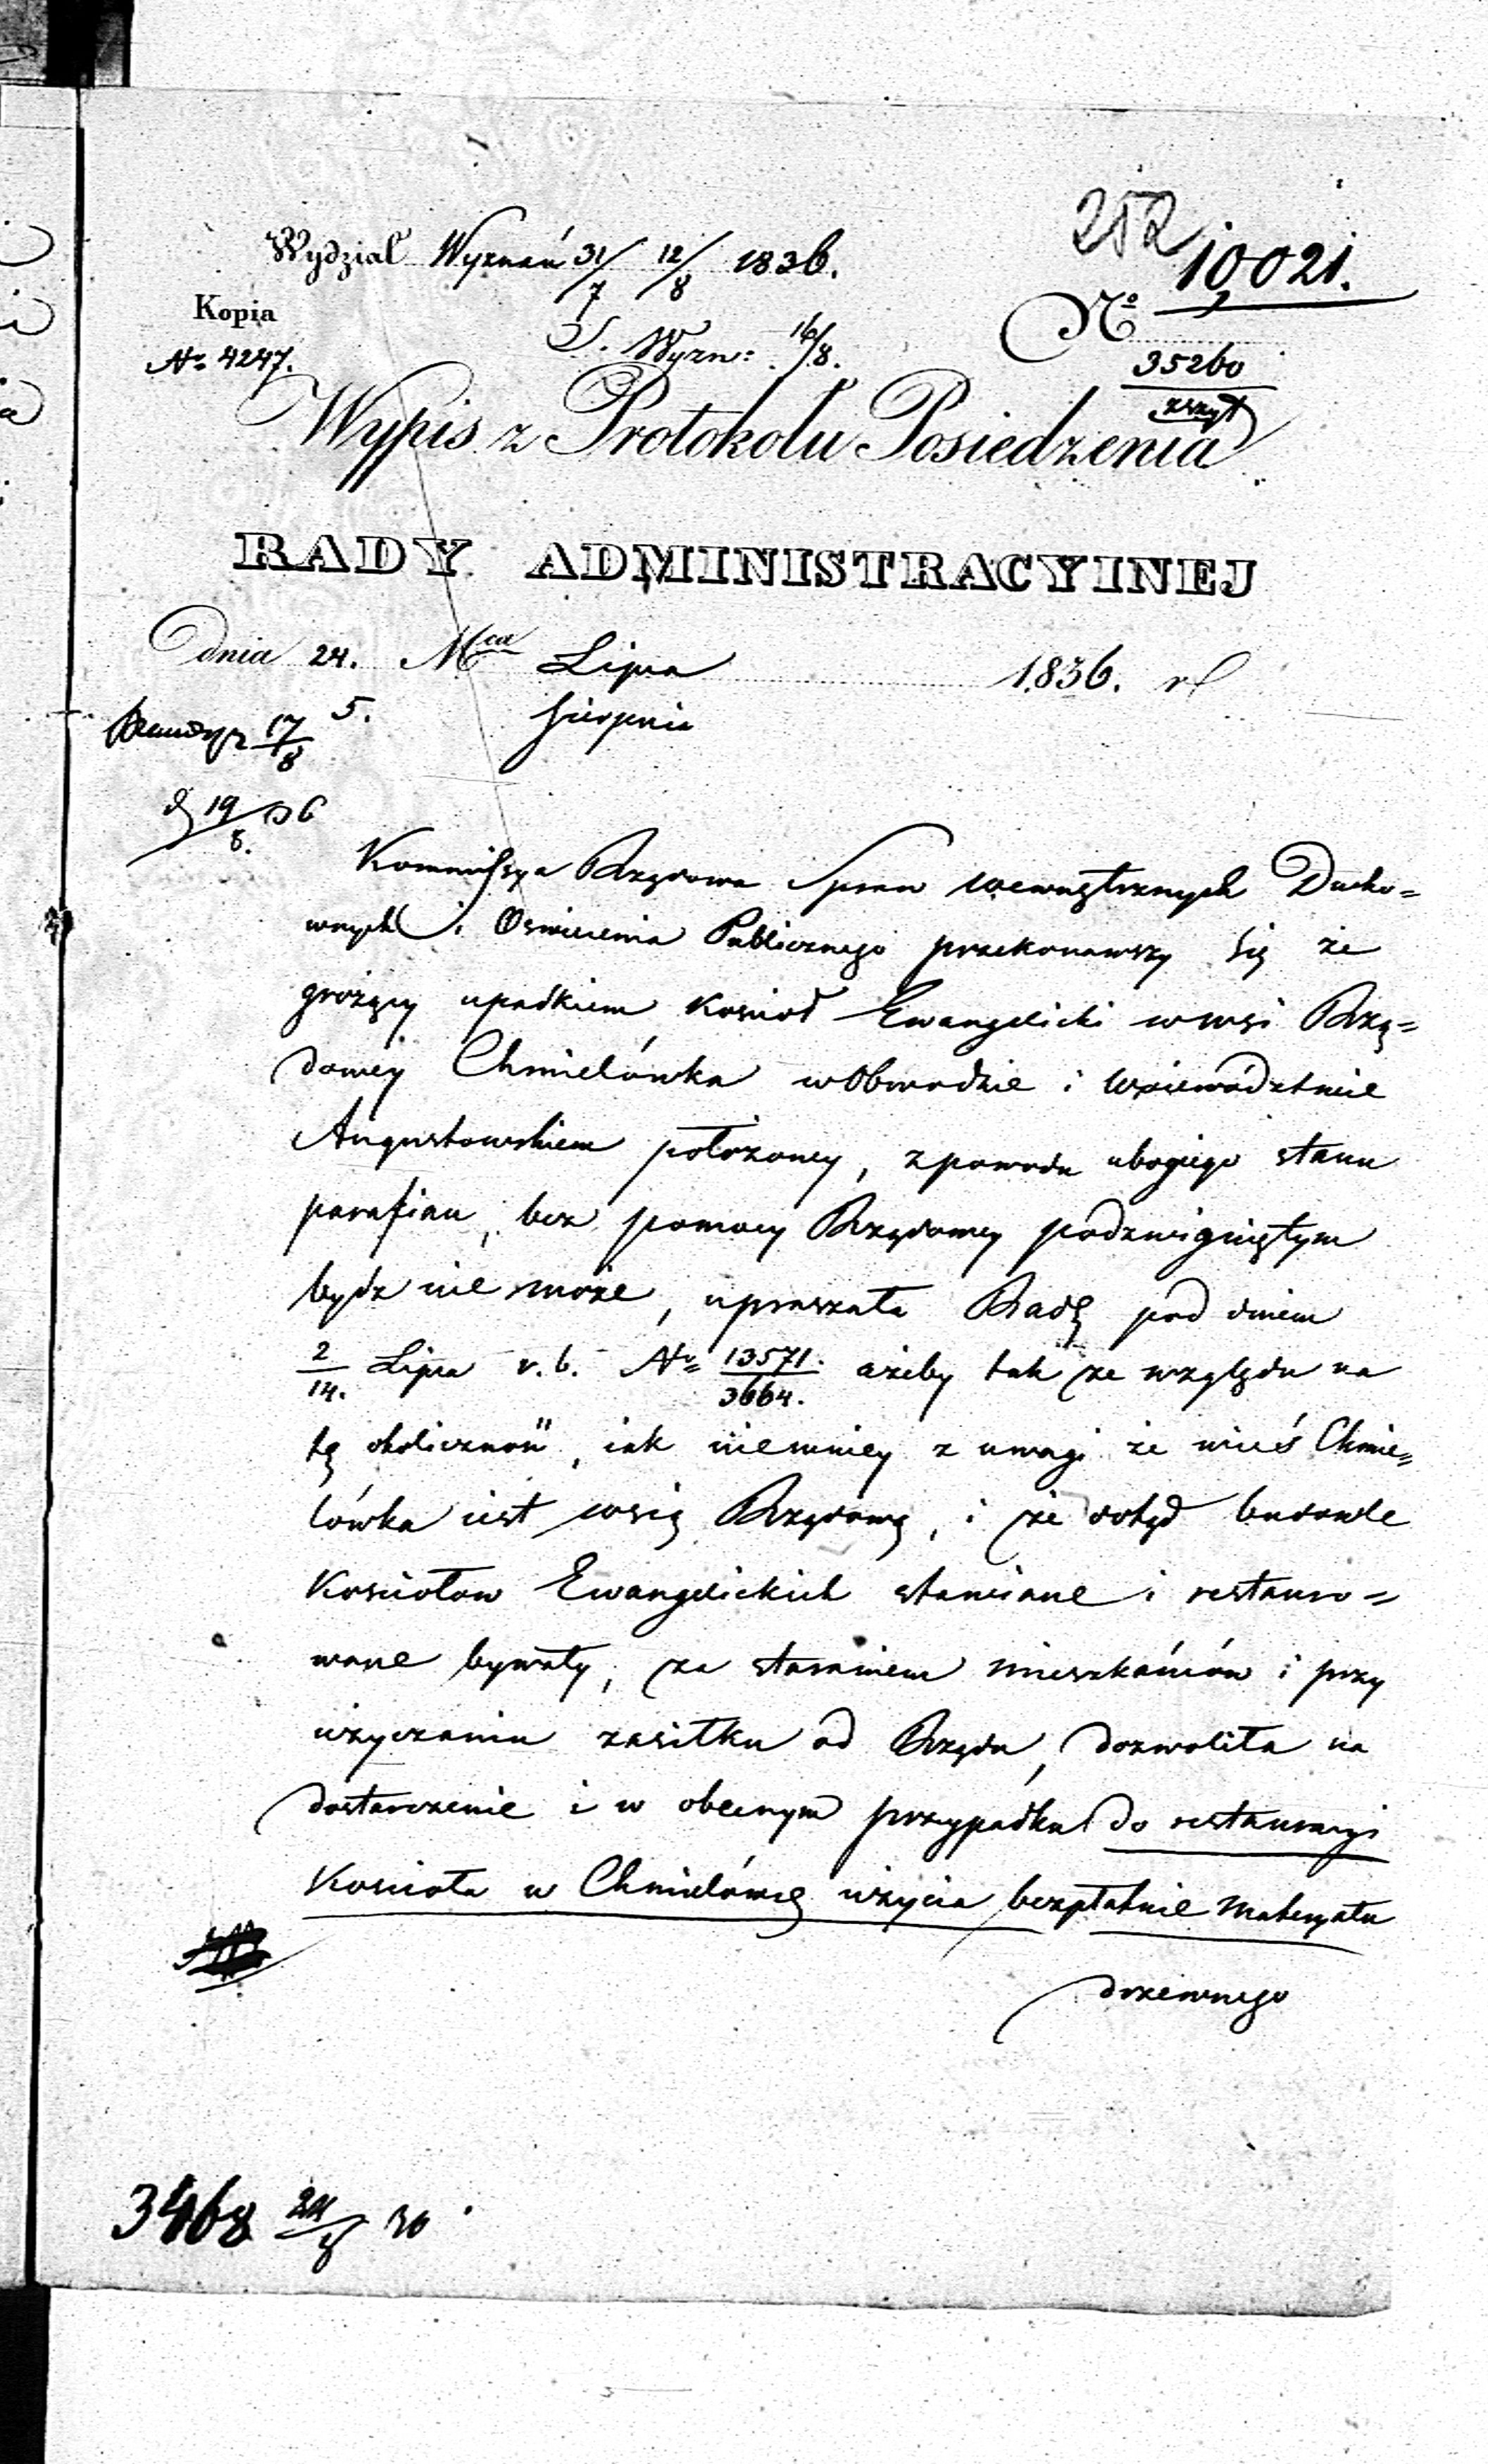 252
Wydział Wyznań 31/7 12/8 1836.
10,021.
Kopia
No
S. Wyzn: 16/8.
No 4247.
35260
zszyt
Wypis z Protokołu Posiedzenia
RADY ADMINISTRACYINEJ
Dnia 24. Mca Lipca 1836. r
5. Sierpnia
17/8
19/8 36
Kommissya Rządowa Spraw Wewnętrznych Ducho=
wnych i Oświecenia Publicznego przekonawszy się że
grożący upadkiem Kościoł Ewangelicki w wsi Rzą=
dowey Chmielówka w Obwodzie i Woiewództwie
Augustowskiem położoney, z powodu ubogiego stanu
parafian, bez pomocy Rządowey podzwigniętym
bydz nie może, upraszała Radę pod dniem
2/14. Lipca r. b. No 13571./3664. ażeby tak ze względu na
tę okoliczność, iak niemniey z uwagi że wieś Chmie=
lówka iest wsią Rządową, i że dotąd budowle
Kościołow Ewangelickich stawiane i restauro=
wane bywały, za staraniem mieszkańców i przy
użyczaniu zasiłku od Rządu, dozwoliła na
dostarczenie i w obecnym przypadku do restauracyi
Kościoła w Chmielówce użycia bezpłatnie materyału
drzewnego
3468 24/8 36